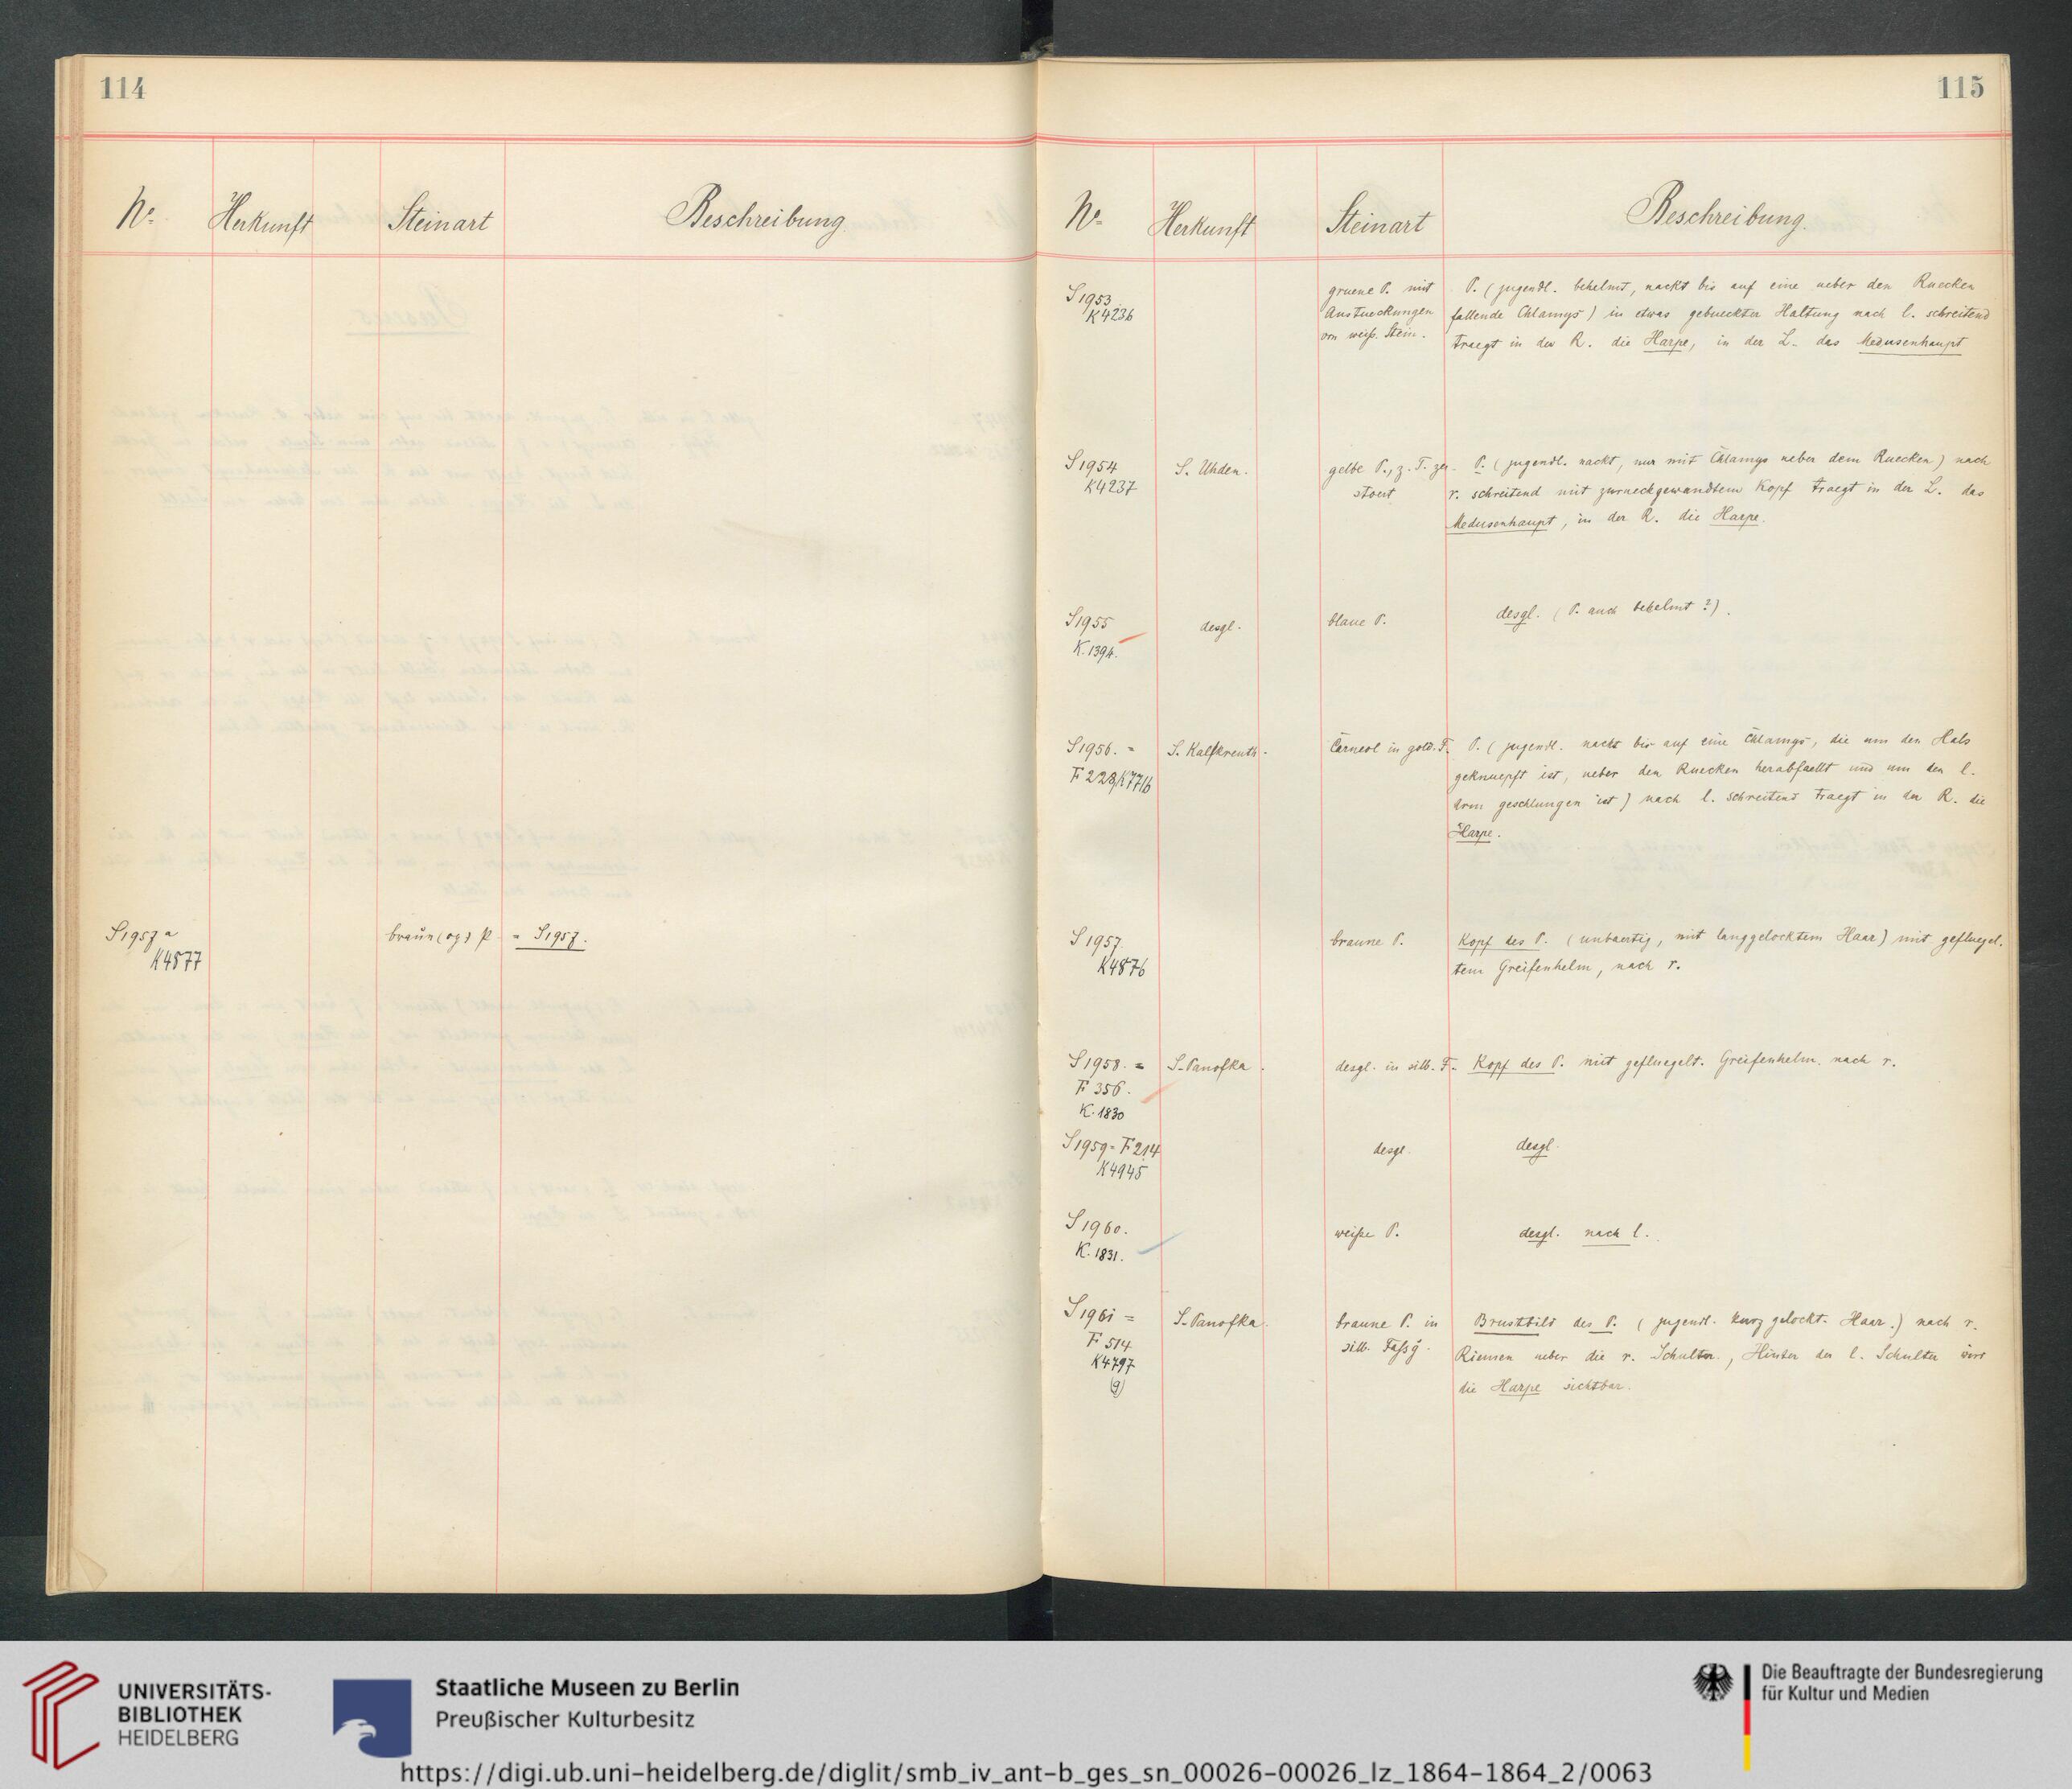 114
Nº Herkunft Steinart Beschreibung.
S1957a braun(og) P = S1957.
K4877
115
Nº Herkunft Steinart Beschreibung.
S1953 gruene P. mit P. (jugendl. behelmt, nackt bis auf eine ueber den Ruecken
K4236 Austueckungen fallende Chlamys) in etwas gebueckter Haltung nach l. schreitend
von weiß. Stein. traegt in der R. die Harpe, in der L. das Medusenhaupt
S1954 S. Uhden. gelbe P., z. T. zer- P. (jugendl. nackt, nur mit Chlamys ueber dem Ruecken) nach
K4237 stoert r. schreitend mit zurueckgewandtem Kopf traegt in der L. das
Medusenhaupt, in der R. die Harpe.
S1955 desgl. blaue P. desgl. (P. auch behelmt?).
K.1394.
S1956. = S. Kalkreuth. Carneol in gold. F. P. (jugendl. nackt bis auf eine Chlamys, die um den Hals
F 228/K7716 geknuepft ist, ueber den Ruecken herabfaellt und um den l.
Arm geschlungen ist) nach l. schreitend traegt in der R. die
Harpe.
S1957. braune P. Kopf des P. (unbaertig, mit langgelocktem Haar) mit gefluegel-
K4876 tem Greifenhelm, nach r.
S1958. = S. Panofka. desgl. in silb. F. Kopf des P. mit gefluegelt. Greifenhelm. nach r.
F 356.
K.1830
S1959 = F214 desgl. desgl.
K4945
S1960. weiße P. desgl. nach l.
K.1831.
S1961 = S. Panofka. braune P. in Brustbild des P. (jugendl. kurz gelockt. Haar.) nach r.
F 514 silb. Fassg. Riemen ueber die r. Schulter., Hinter der l. Schulter wird
K4797 die Harpe sichtbar.
(g)
UNIVERSITÄTS-
BIBLIOTHEK
HEIDELBERG
Staatliche Museen zu Berlin
Preußischer Kulturbesitz
Die Beauftragte der Bundesregierung
für Kultur und Medien
https://digi.ub.uni-heidelberg.de/diglit/smb_iv_ant-b_ges_sn_00026-00026_lz_1864-1864_2/0063